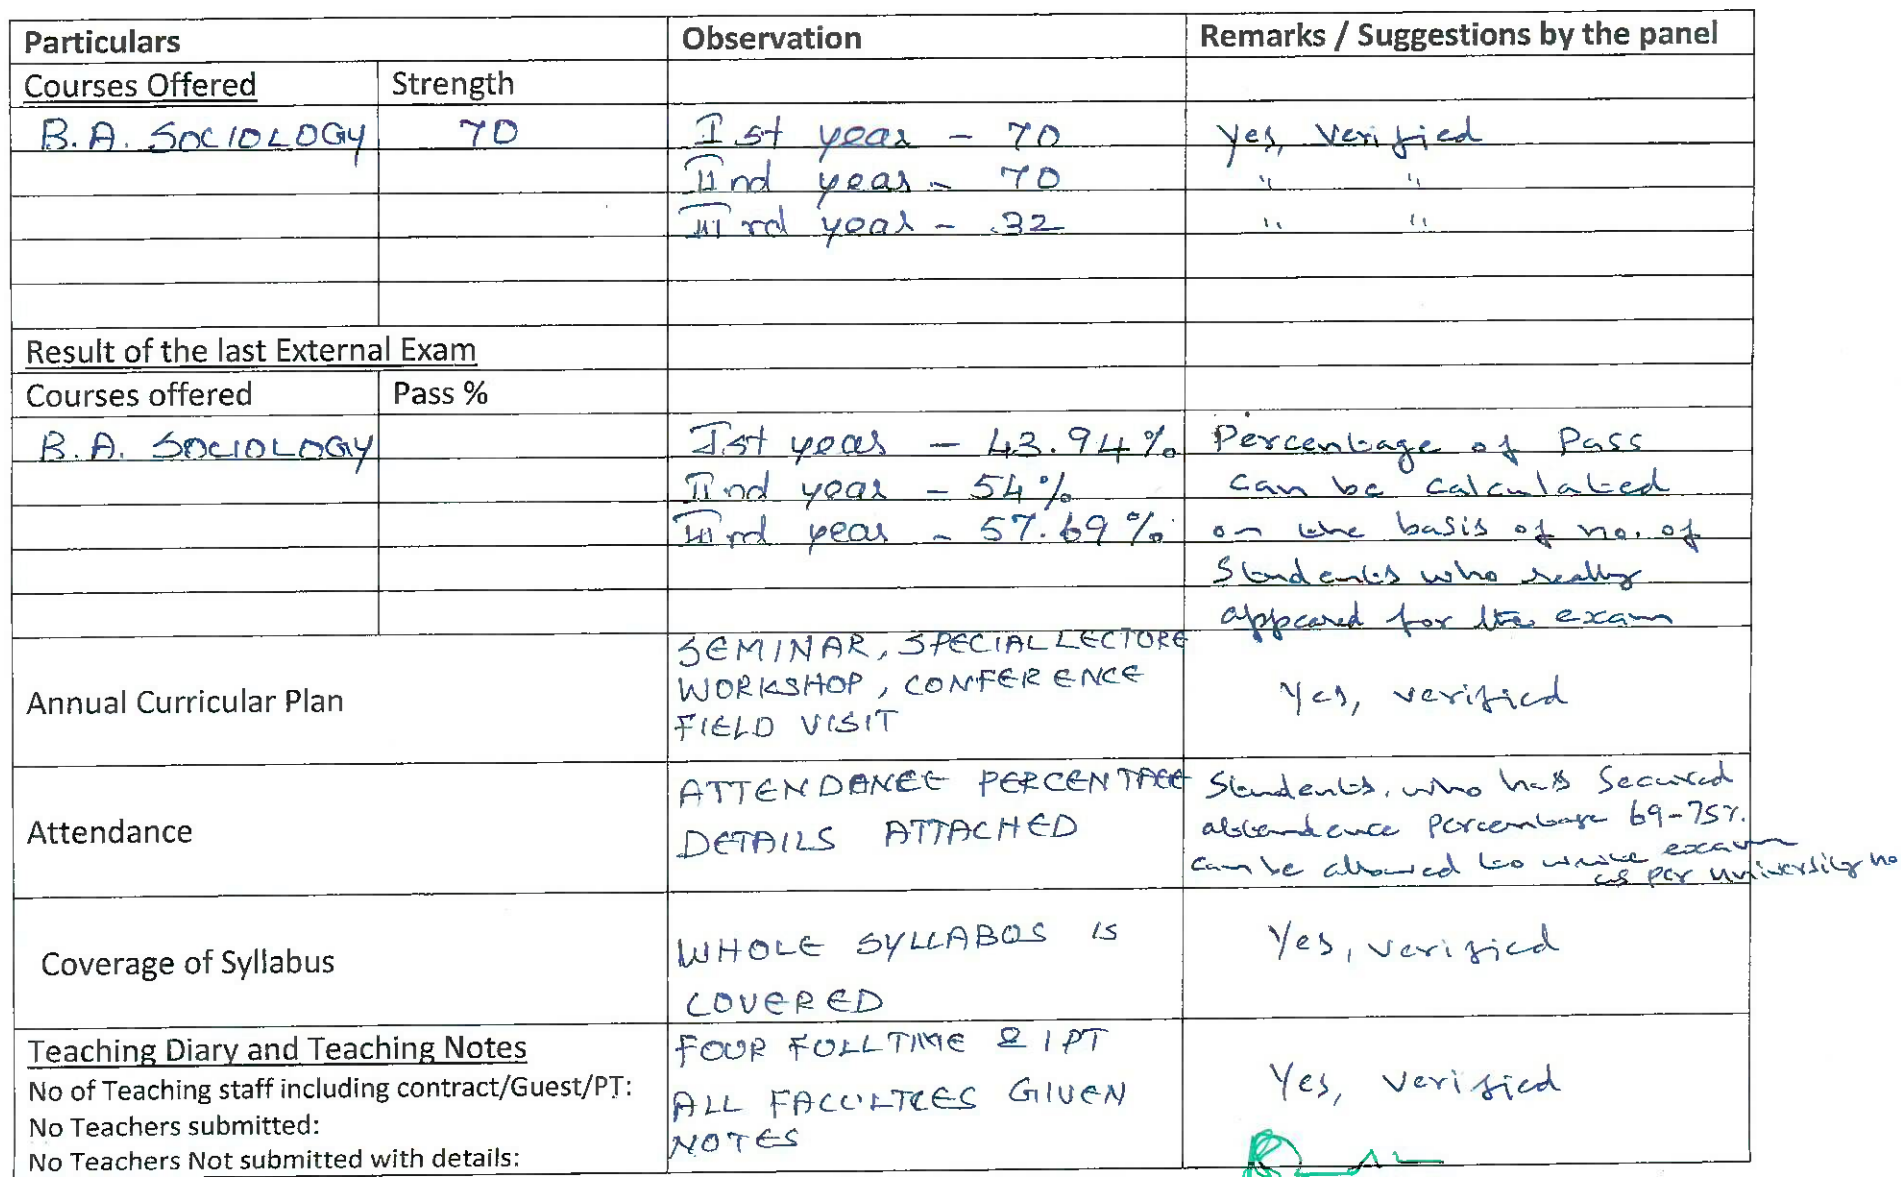 Particulars Observation Remarks / Suggestions by the panel
Courses Offered Strength
B.A. SOCIOLOGY 70 I st year - 70 Yes, Verified
II nd year - 70 " "
III rd year - 32 " "
Result of the last External Exam
Courses offered Pass %
B.A. SOCIOLOGY I st year - 43.94% Percentage of Pass
II nd year - 54% can be calculated
III rd year - 57.69% on the basis of no. of
Students who really
appeared for the exam
Annual Curricular Plan
SEMINAR, SPECIAL LECTURE
WORKSHOP, CONFERENCE
FIELD VISIT
Yes, verified
Attendance
ATTENDANCE PERCENTAGE
DETAILS ATTACHED
Students, who has Secured
attendence Percentage 69-75%.
can be allowed to write exam
as per University no
Coverage of Syllabus
WHOLE SYLLABUS IS
COVERED
Yes, verified
Teaching Diary and Teaching Notes
No of Teaching staff including contract/Guest/PT:
No Teachers submitted:
No Teachers Not submitted with details:
FOUR FULL TIME & 1 PT
ALL FACULTIES GIVEN
NOTES
Yes, verified